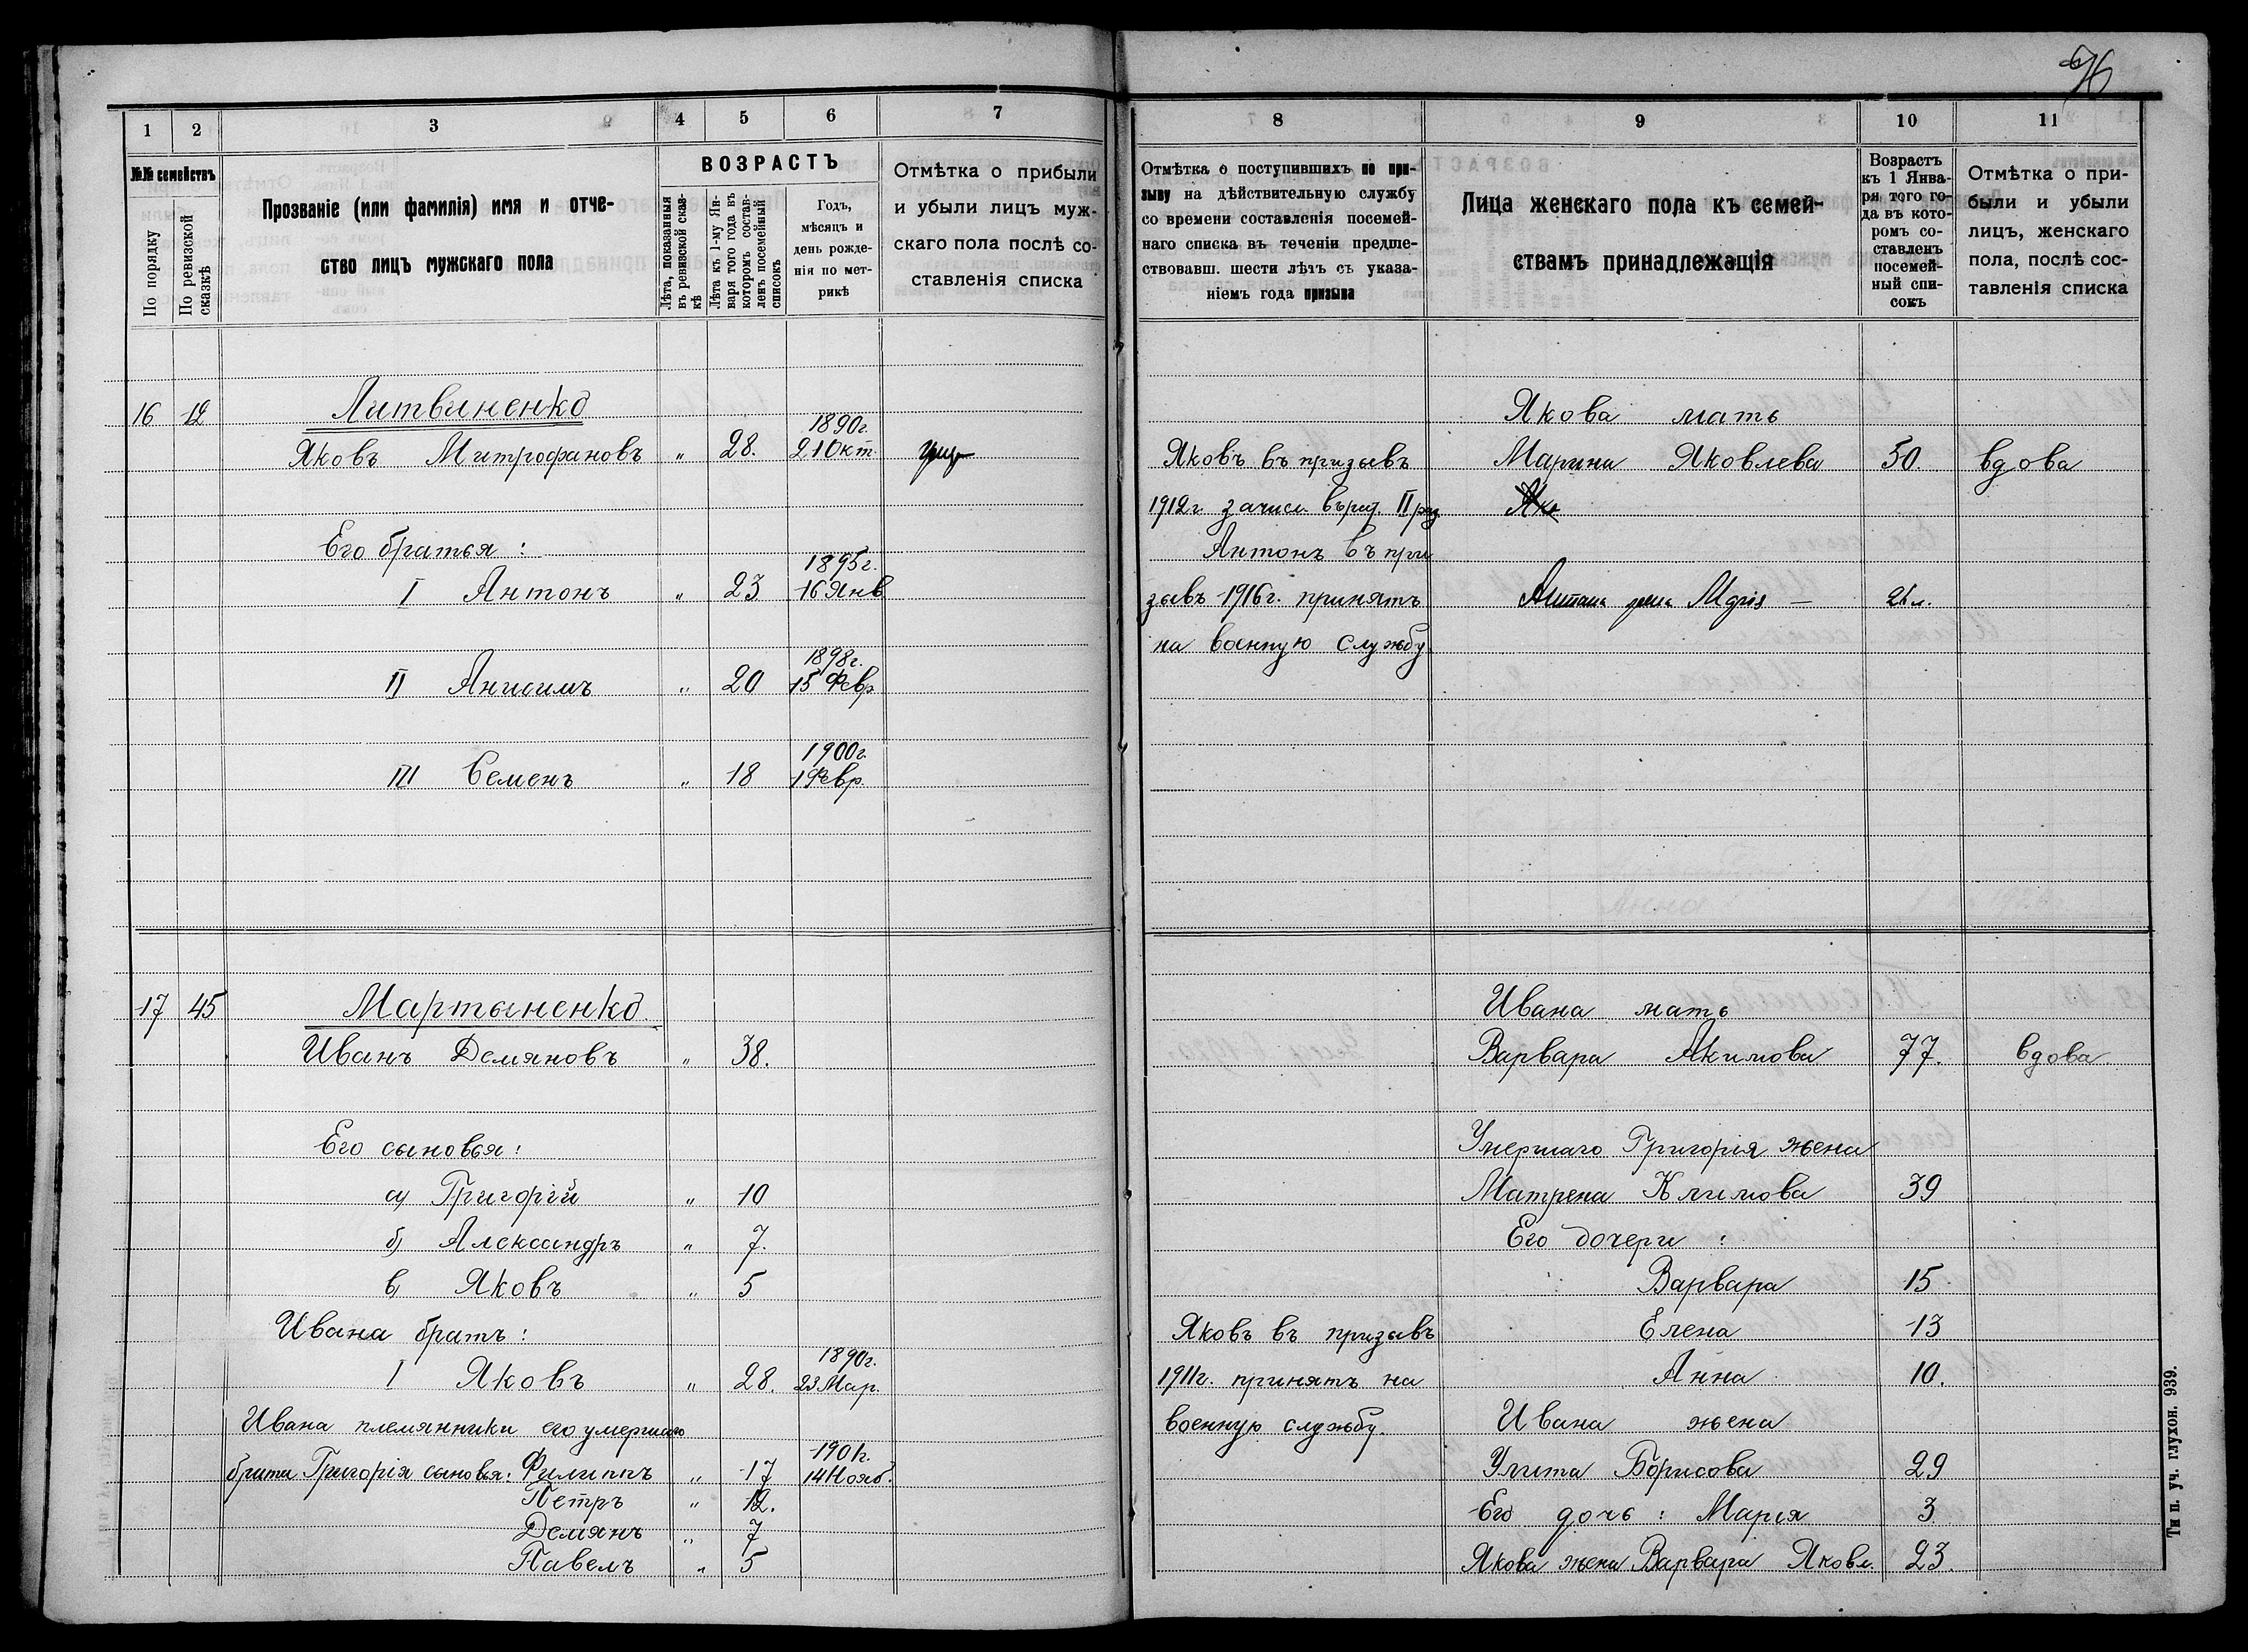 76
1 2 3 4 5 6 7
№№ семействъ
По порядку
По ревизской сказкѣ
Прозваніе (или фамилія) имя и отче-
ство лицъ мужскаго пола
ВОЗРАСТЪ
Лѣта, показанныя
въ ревизской сказ-
кѣ
Лѣта къ 1-му Ян-
варя того года въ
которомъ состав-
ленъ посемейный
списокъ
Годъ,
мѣсяцъ и
день рожде-
нія по мет-
рикѣ
Отмѣтка о прибыли
и убыли лицъ муж-
скаго пола послѣ со-
ставленія списка
16 12 Литвиненко
1890г.
Яковъ Митрофановъ „ 28. 21 Окт.
Его братья:
1895г.
I Антонъ „ 23 16 Янв
1898г.
II Анисимъ „ 20 15 Февр
1900г.
III Семенъ „ 18 1 Февр.
17 45 Мартыненко
Иванъ Демяновъ „ 38.
Его сыновья:
а) Григорій „ 10
б) Александръ „ 7.
в) Яковъ „ 5
Ивана братъ:
1890г.
I Яковъ „ 28. 23 Мар.
Ивана племянники его умершаго
1901г.
брата Григорія сыновья: Филиппъ „ 17 14 Нояб.
Петръ „ 12.
Демянъ „ 7
Павелъ „ 5
8 9 10 11
Отмѣтка о поступившихъ по при-
зыву на дѣйствительную службу
со времени составленія посемей-
наго списка въ теченіи предше-
ствовавш. шести лѣтъ съ указа-
ніемъ года призыва
Лица женскаго пола къ семей-
ствамъ принадлежащія
Возрастъ
къ 1 Янва-
ря того го-
да въ кото-
ромъ со-
ставленъ
посемей-
ный спи-
сокъ
Отмѣтка о при-
были и убыли
лицъ, женскаго
пола, послѣ сос-
тавленія списка
Якова мать
Яковъ въ призывъ Марина Яковлева 50. вдова
1912г. зачисл. въ рат. II раз.
Антонъ въ при
зывъ 1916г. принятъ Антона жена Марія — 21 л.
на военную службу
Ивана мать
Варвара Акимова 77. вдова
Умершаго Григорія жена
Матрена Климова 39
Его дочери:
Варвара 15.
Яковъ въ призывъ Елена 13
1911г. принятъ на Анна 10.
военную службу. Ивана жена
Улита Борисова 29
Его дочь: Марія 3
Якова жена Варвара Яковл. 23.
Тип. уч. глухон. 939.